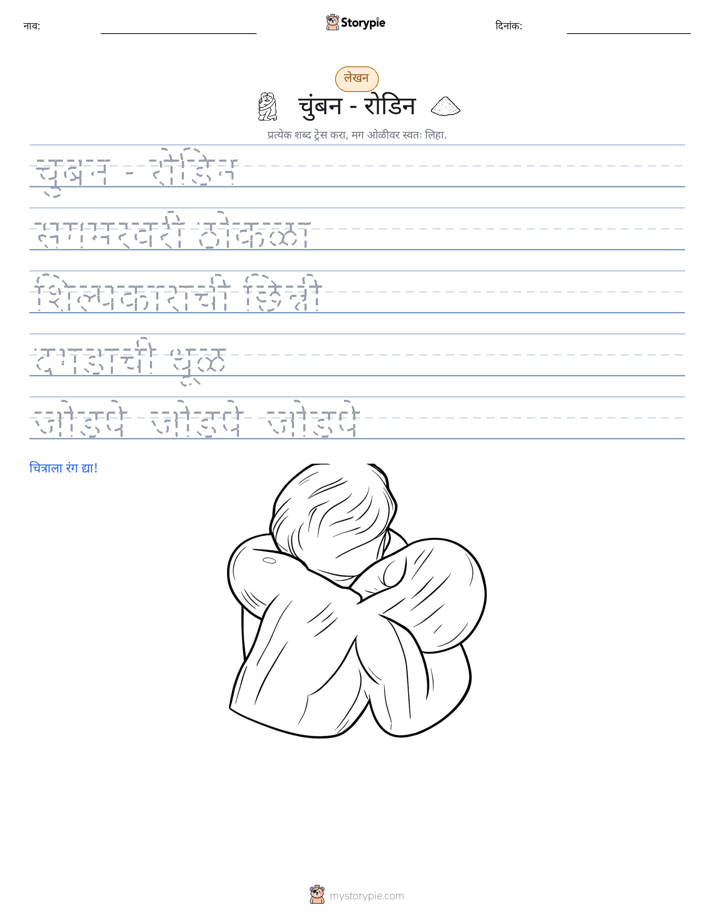 नाव:
Storypie
दिनांक:
लेखन
चुंबन - रोडिन
प्रत्येक शब्द ट्रेस करा, मग ओळीवर स्वतः लिहा.
चुंबन - रोडिन
संगमरवरी ठोकळा
शिल्पकाराची छिन्नी
दगडाची धूळ
जोडपे जोडपे जोडपे
चित्राला रंग द्या!
mystorypie.com